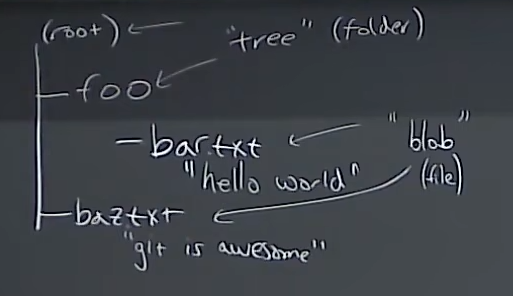 (root) "tree" (folder)
foo
bar.txt "blob"
"hello world" (file)
baz.txt
"git is awesome"